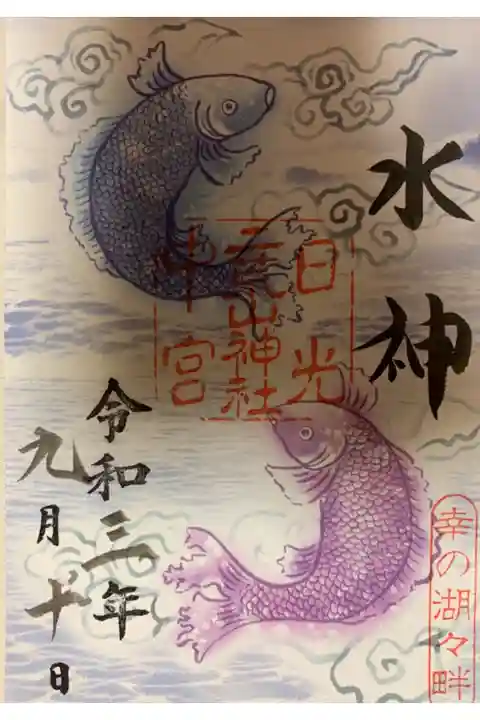 水神
日光
二荒山神社
中宮
令和三年
九月十日
幸の湖々畔